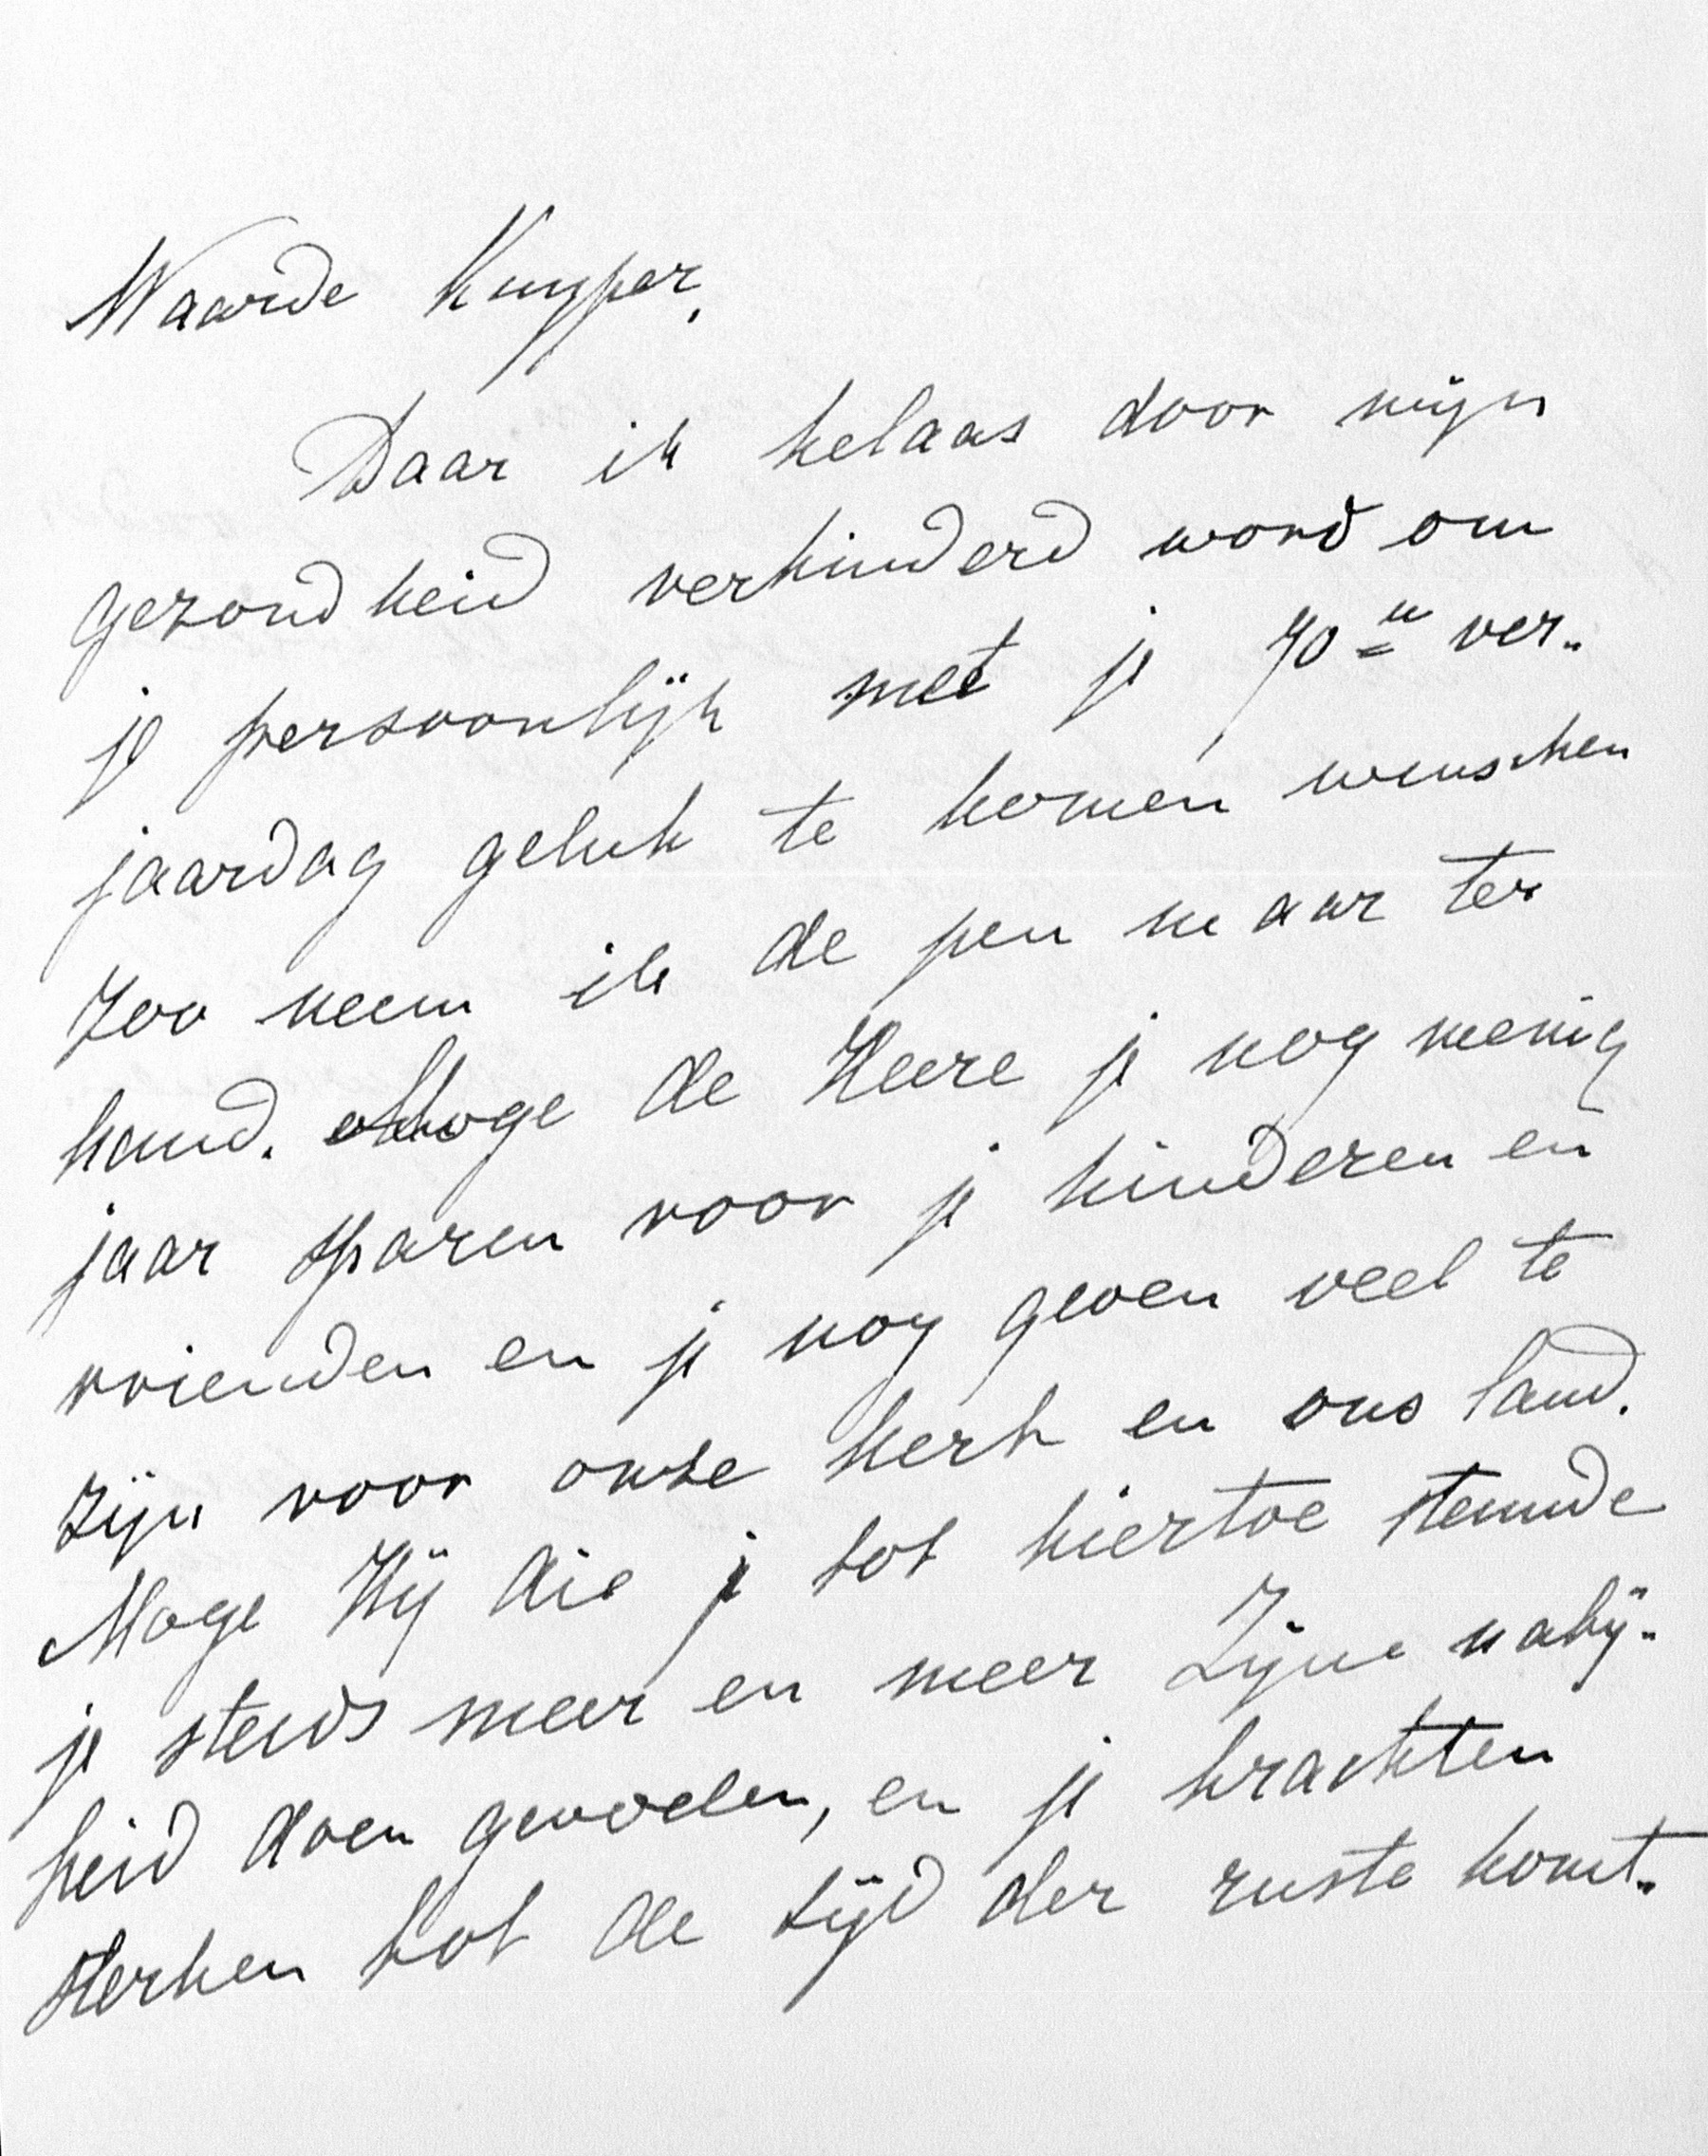 Waarde Kuyper,
Daar ik helaas door mijn
gezondheid verhinderd word om
je persoonlijk met je 70e ver-
jaardag geluk te komen wenschen
zoo neem ik de pen maar ter
hand. Moge de Heere je nog menig
jaar sparen voor je kinderen en
vrienden en je nog geven veel te
zijn voor onze kerk en ons land.
Moge Hij die je tot hiertoe steunde
je steeds meer en meer Zijne nabij-
heid doen gevoelen, en je krachten
sterken tot de tijd der ruste komt.